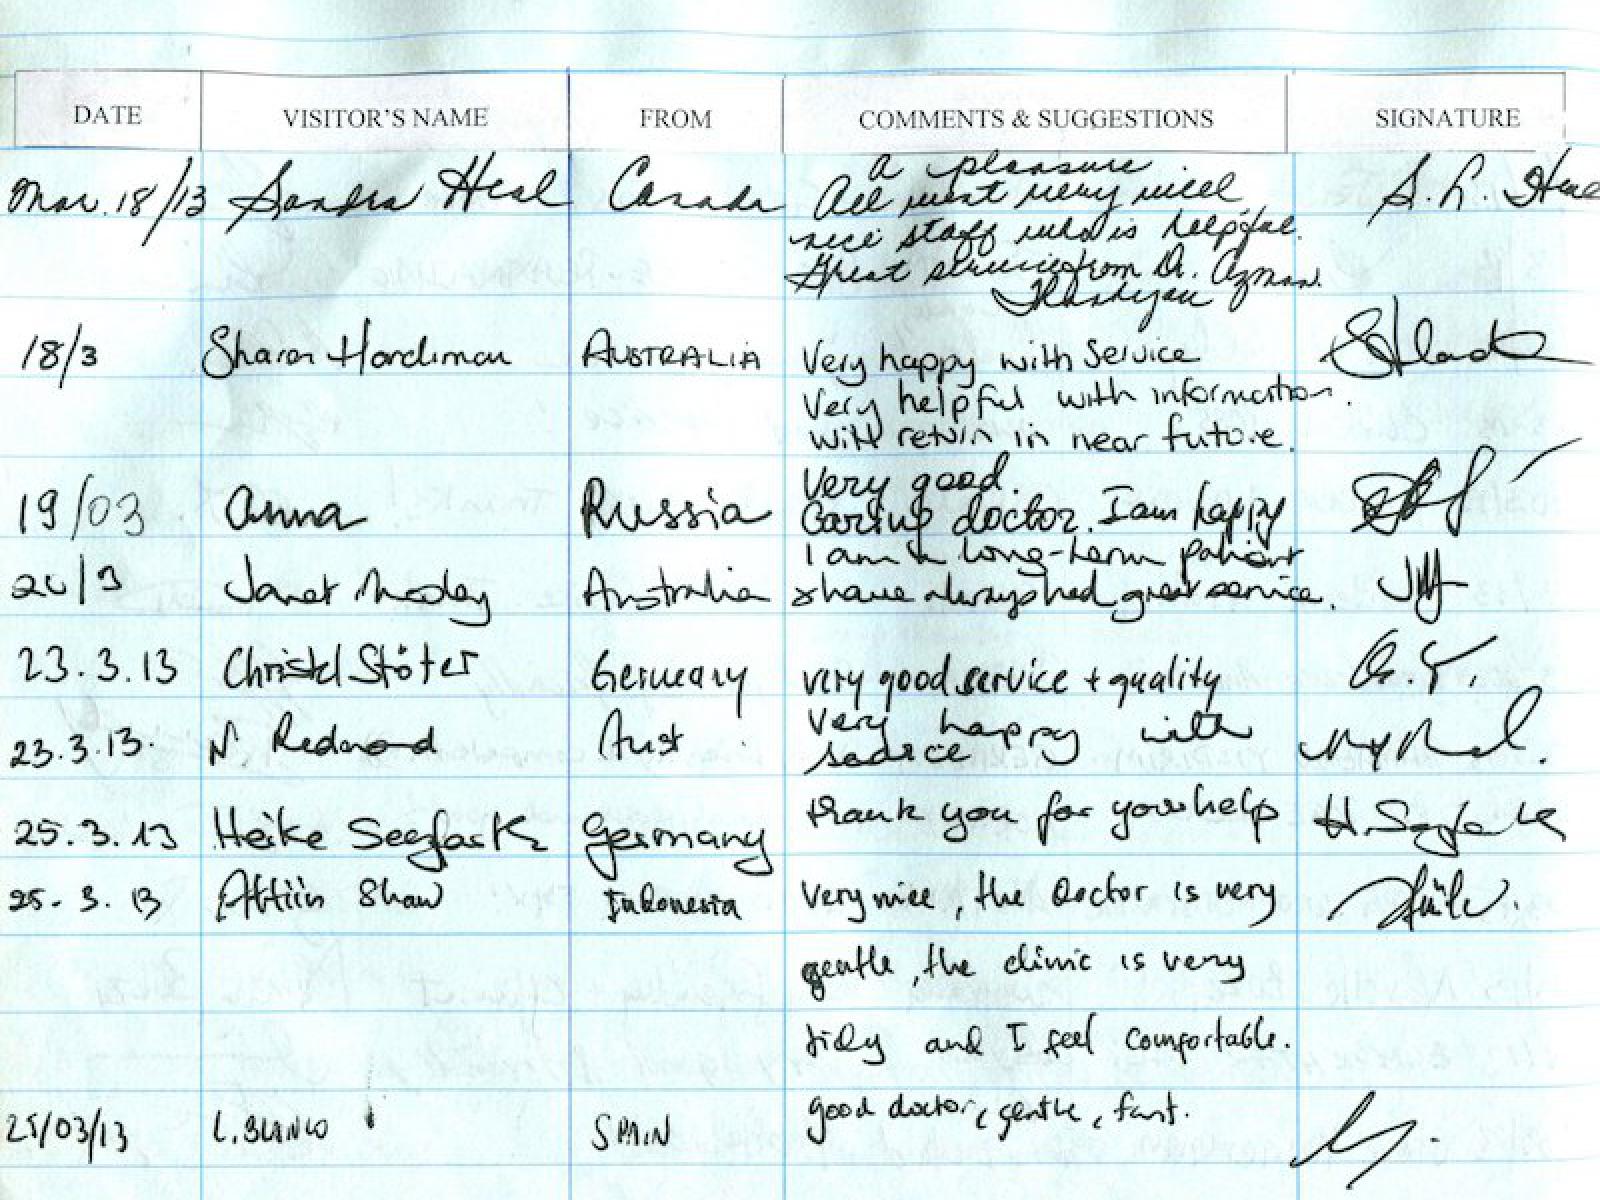 DATE VISITOR'S NAME FROM COMMENTS & SUGGESTIONS SIGNATURE
A pleasure
Mar. 18/13 Sandra Heal Canada All went very well S. L. Heal
nice staff who is helpful.
Great service from Dr. Azman.
Thankyou
18/3 Sharon Hardiman AUSTRALIA Very happy with Service
Very helpful with information.
will return in near future.
Very good.
19/03 Anna Russia Caring doctor. I am happy
I am a long-term patient
20/3 Janet Australia & have always had great service.
23.3.13 Christel Stöter Germany very good service + quality
Very happy with
23.3.13. N Redmond Aust service
25.3.13 Heike Germany thank you for your help
25.3.13 Shaw Indonesia Very nice, the Doctor is very
gentle, the clinic is very
tidy and I feel comfortable.
25/03/13 L. BLANCO SPAIN good doctor, gentle, fast.